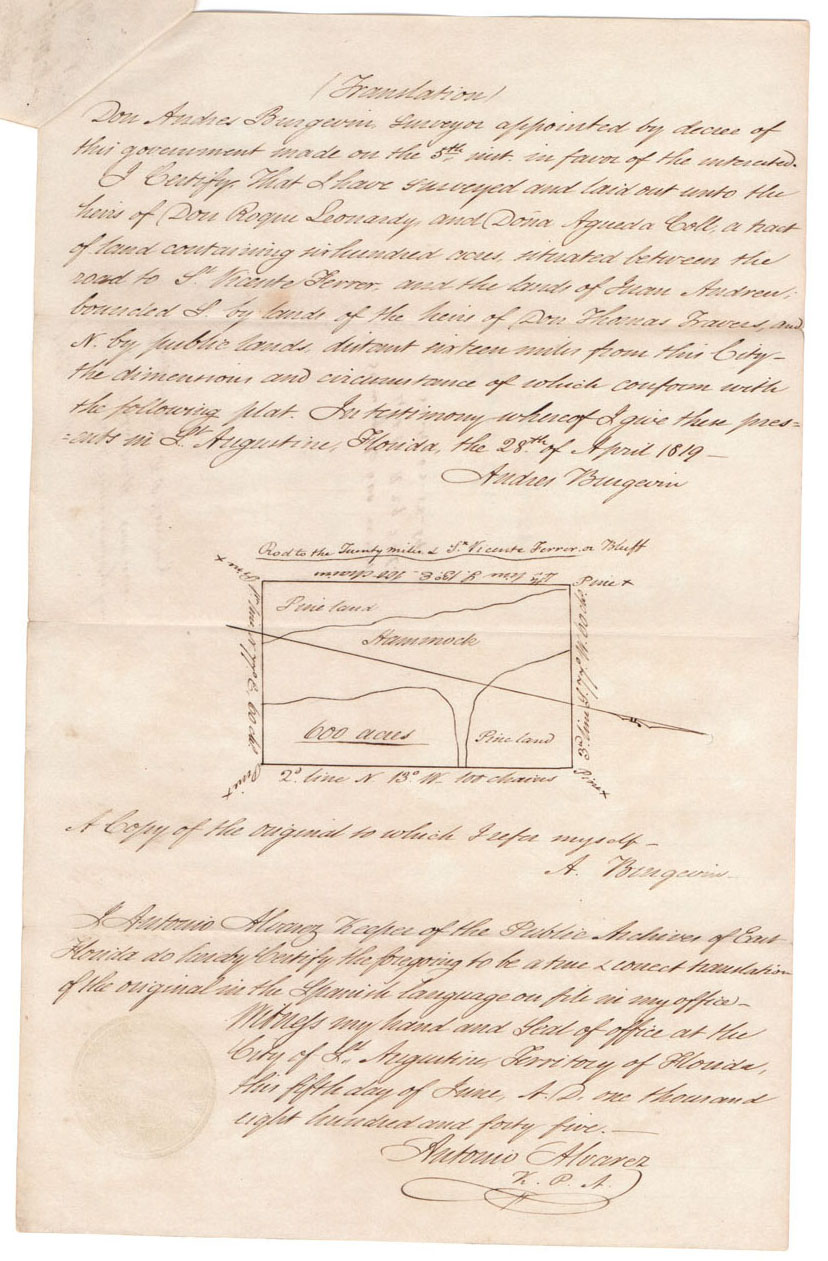 (Translation)
Don Andres Burgevin, surveyor appointed by decree of
this government made on the 5th inst. in favor of the interested.
I Certify, That I have surveyed and laid out unto the
heirs of Don Roque Leonardy, and Doña Agueda Coll, a tract
of land containing six hundred acres, situated between the
road to Sn. Vicente Ferrer, and the lands of Juan Andreu;
bounded S. by lands of the heirs of Don Thomas Travers, and
N. by public lands, distant sixteen miles from this City—
the dimensions and circumstance of which conform with
the following plat. In testimony whereof I give these pres=
=ents in St. Augustine, Florida, the 28th of April 1819—
Andres Burgevin
Road to the Twenty mile & Sn. Vicente Ferrer or Bluff
4th line S. 13° E. 100 chains
Pine X
Pine X
Pine land
Hammock
1st line N. 77° E. 60 chs.
3rd line S. 77° W. 60 chs.
600 acres
Pine land
Pine X
2d. line N. 13° W— 100 chains
Pine X
A Copy of the original to which I refer myself—
A. Burgevin—
I Antonio Alvarez Keeper of the Public Archives of East
Florida do hereby Certify the foregoing to be a true & correct translation
of the original in the Spanish language on file in my office—
Witness my hand and Seal of office at the
City of St. Augustine, Territory of Florida,
this fifth day of June, A. D. one thousand
eight hundred and forty five.—
Antonio Alvarez
K. P. A.